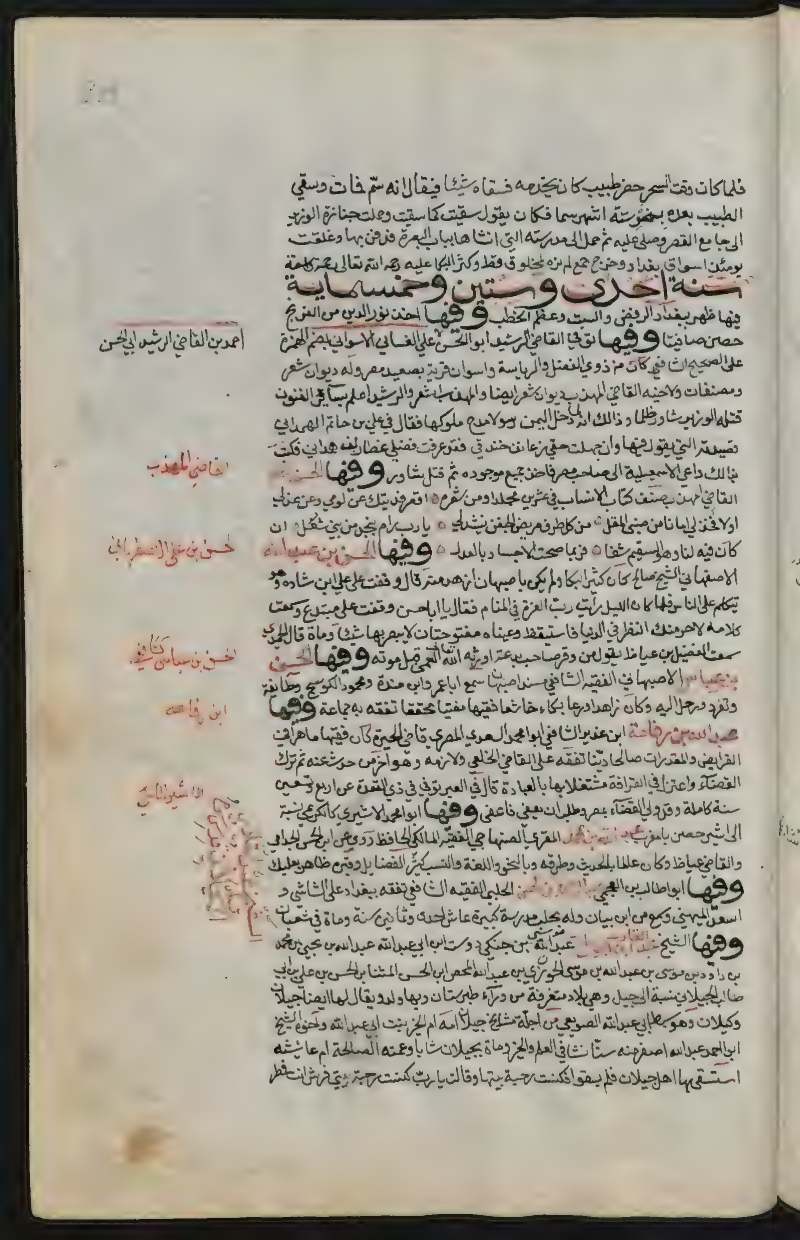 فلما كان وقت السحر حضر طبيب كان يخدمه فسقاه شيئا فيقال انه سم فمات وسقي
الطبيب بعده بخمس سنة اشهر سما فكان يقول سقيت كما سقيت وحملت جنازة الوزير
الى جامع القصر وصلي عليه ثم حمل الى مدرسته التي انشاها بباب البصرة فدفن بها وغلقت
يومئذ اسواق بغداد وخرج جمع لم نره لمخلوق قط وكثر البكا عليه رحمه الله تعالى
سنة احدى وستين وخمسماية
فيها ظهر ببغداد الرفض والسب وعظم الخطب وفيها اخذ نور الدين من الفرنج
حصن صافيتا وفيها توفي القاضي الرشيد ابو الحسن علي الغساني الاسواني بضم الهمزة
على الصحيح كان من ذوي الفضل والرياسة واسوان قرية بصعيد مصر وله ديوان شعر
ومصنفات ولاخيه القاضي المهذب ديوان شعر ايضا والمهذب اشعر والرشيد اعلم بسائر الفنون
قتله الوزير شاور ظلما وذلك انه لما دخل اليمن رسولا مدح ملوكها فقال في علي بن حاتم الهمداني
قصيدته التي يقول فيها وان جهلت حقي زعانف خندف فقد عرفت فضلي غطاريف همدان فكتب
بذلك داعي الاسمعيلية الى صاحب مصر فاخذ جميع موجوده ثم قتله شاور وفيها الحسن بن
القاضي المهذب صنف كتاب الانساب في عشرين مجلدا ومن شعره اقصر فديتك عن لومي وعن عذلي
اولا فخذ لي امانا من ظبي المقل من كل طرف مريض الجفن ينشدني يا رب رام بنجد من بني ثعل ان
كان فيه لنا وهو السقيم شفا فربما صحت الاجساد بالعلل وفيها الحسن بن عبد الله
الاصفهاني الشيخ صالح كان كثير البكا ولم يكن باصبهان ازهد منه قال وقفت على علي ابن شاده وهو
يتكلم على الناس فلما كان الليل رايت رب العزة في المنام فقال يا ابا حسن وقفت على مبتدع وسمعت
كلامه لاحرمنك النظر في الدنيا فاستيقظ وعيناه مفتوحتان لا يبصر بهما شيئا ومات قال الحميدي
سمعت الفضيل بن عياض يقول من وقر صاحب بدعة اورثه الله العمى قبل موته وفيها الحسن
بن عباس الاصبهاني الفقيه الشافعي مسند اصبهان سمع ابا عمرو ابن مندة ومحمود الكوسج وطايفة
وتفرد ورحل اليه وكان زاهدا ورعا بكاء خاشعا فقيها مفتيا محققا تفقه به جماعة وفيها
عبد الله بن رفاعة ابن غدير الشافعي ابو محمد السعدي المصري قاضي الجيزة كان فقيها ماهرا في
الفرايض والمقدرات صالحا دينا تفقه على القاضي الخلعي ولازمه وهو اخر من حدث عنه ثم ترك
القضاء واعتزل في القرافة مشتغلا بها بالعبادة قال في العبر توفي في ذي القعدة عن اربع وتسعين
سنة كاملة وقد ولي القضاء بمصر وطلب ان يعفي فاعفي وفيها ابو محمد الاشيري كالكريمي نسبة
الى اشير حصن بالمغرب عبد الله بن محمد المغربي الصنهاجي الفقيه المالكي الحافظ روى عن ابي الحسن الجذامي
والقاضي عياض وكان عالما بالحديث وطرقه وبالنحو واللغة والنسب كثير الفضايل وقبره ظاهر بعلبك
وفيها ابو طالب بن العجمي عبد الرحمن بن الحسن الحلبي الفقيه الشافعي تفقه ببغداد على الشاشي و
اسعد الميهني وسمع من ابن بيان وله بحلب مدرسة كبيرة عاش احدى وثمانين سنة ومات في شعبان
وفيها الشيخ عبد القادر بن ابي صالح عبد الله بن جنكي دوست ابن ابي عبد الله عبد الله بن يحيى بن محمد
بن داود بن موسى بن عبد الله بن موسى الحوزي بن عبد الله المحض ابن الحسن المثنى بن الحسن بن علي بن ابي
طالب الجيلاني نسبة الى جيل وهي بلاد متفرقة من وراء طبرستان وبها ولد ويقال لها ايضا جيلان
وكيلان وهو سبط ابي عبد الله الصومعي من اجلة مشايخ جيلان امه ام الخير بنت ابي عبد الله واخوه الشيخ
ابو احمد عبد الله اصغر منه سنا نشا في العلم والخير ومات بجيلان شابا وعمته الصالحة ام عايشة
استسقى بها اهل جيلان فلم يسقوا فكنست رحبة بيتها وقالت يا رب كنست رحبة بيتي فرش انت فمطر
احمد بن القاضي الرشيد ابي الحسن
القاضي المهذب
الحسن بن علي الاصفهاني
الحسن بن عباس الشافعي
ابن رفاعه
الاشيري المالكي